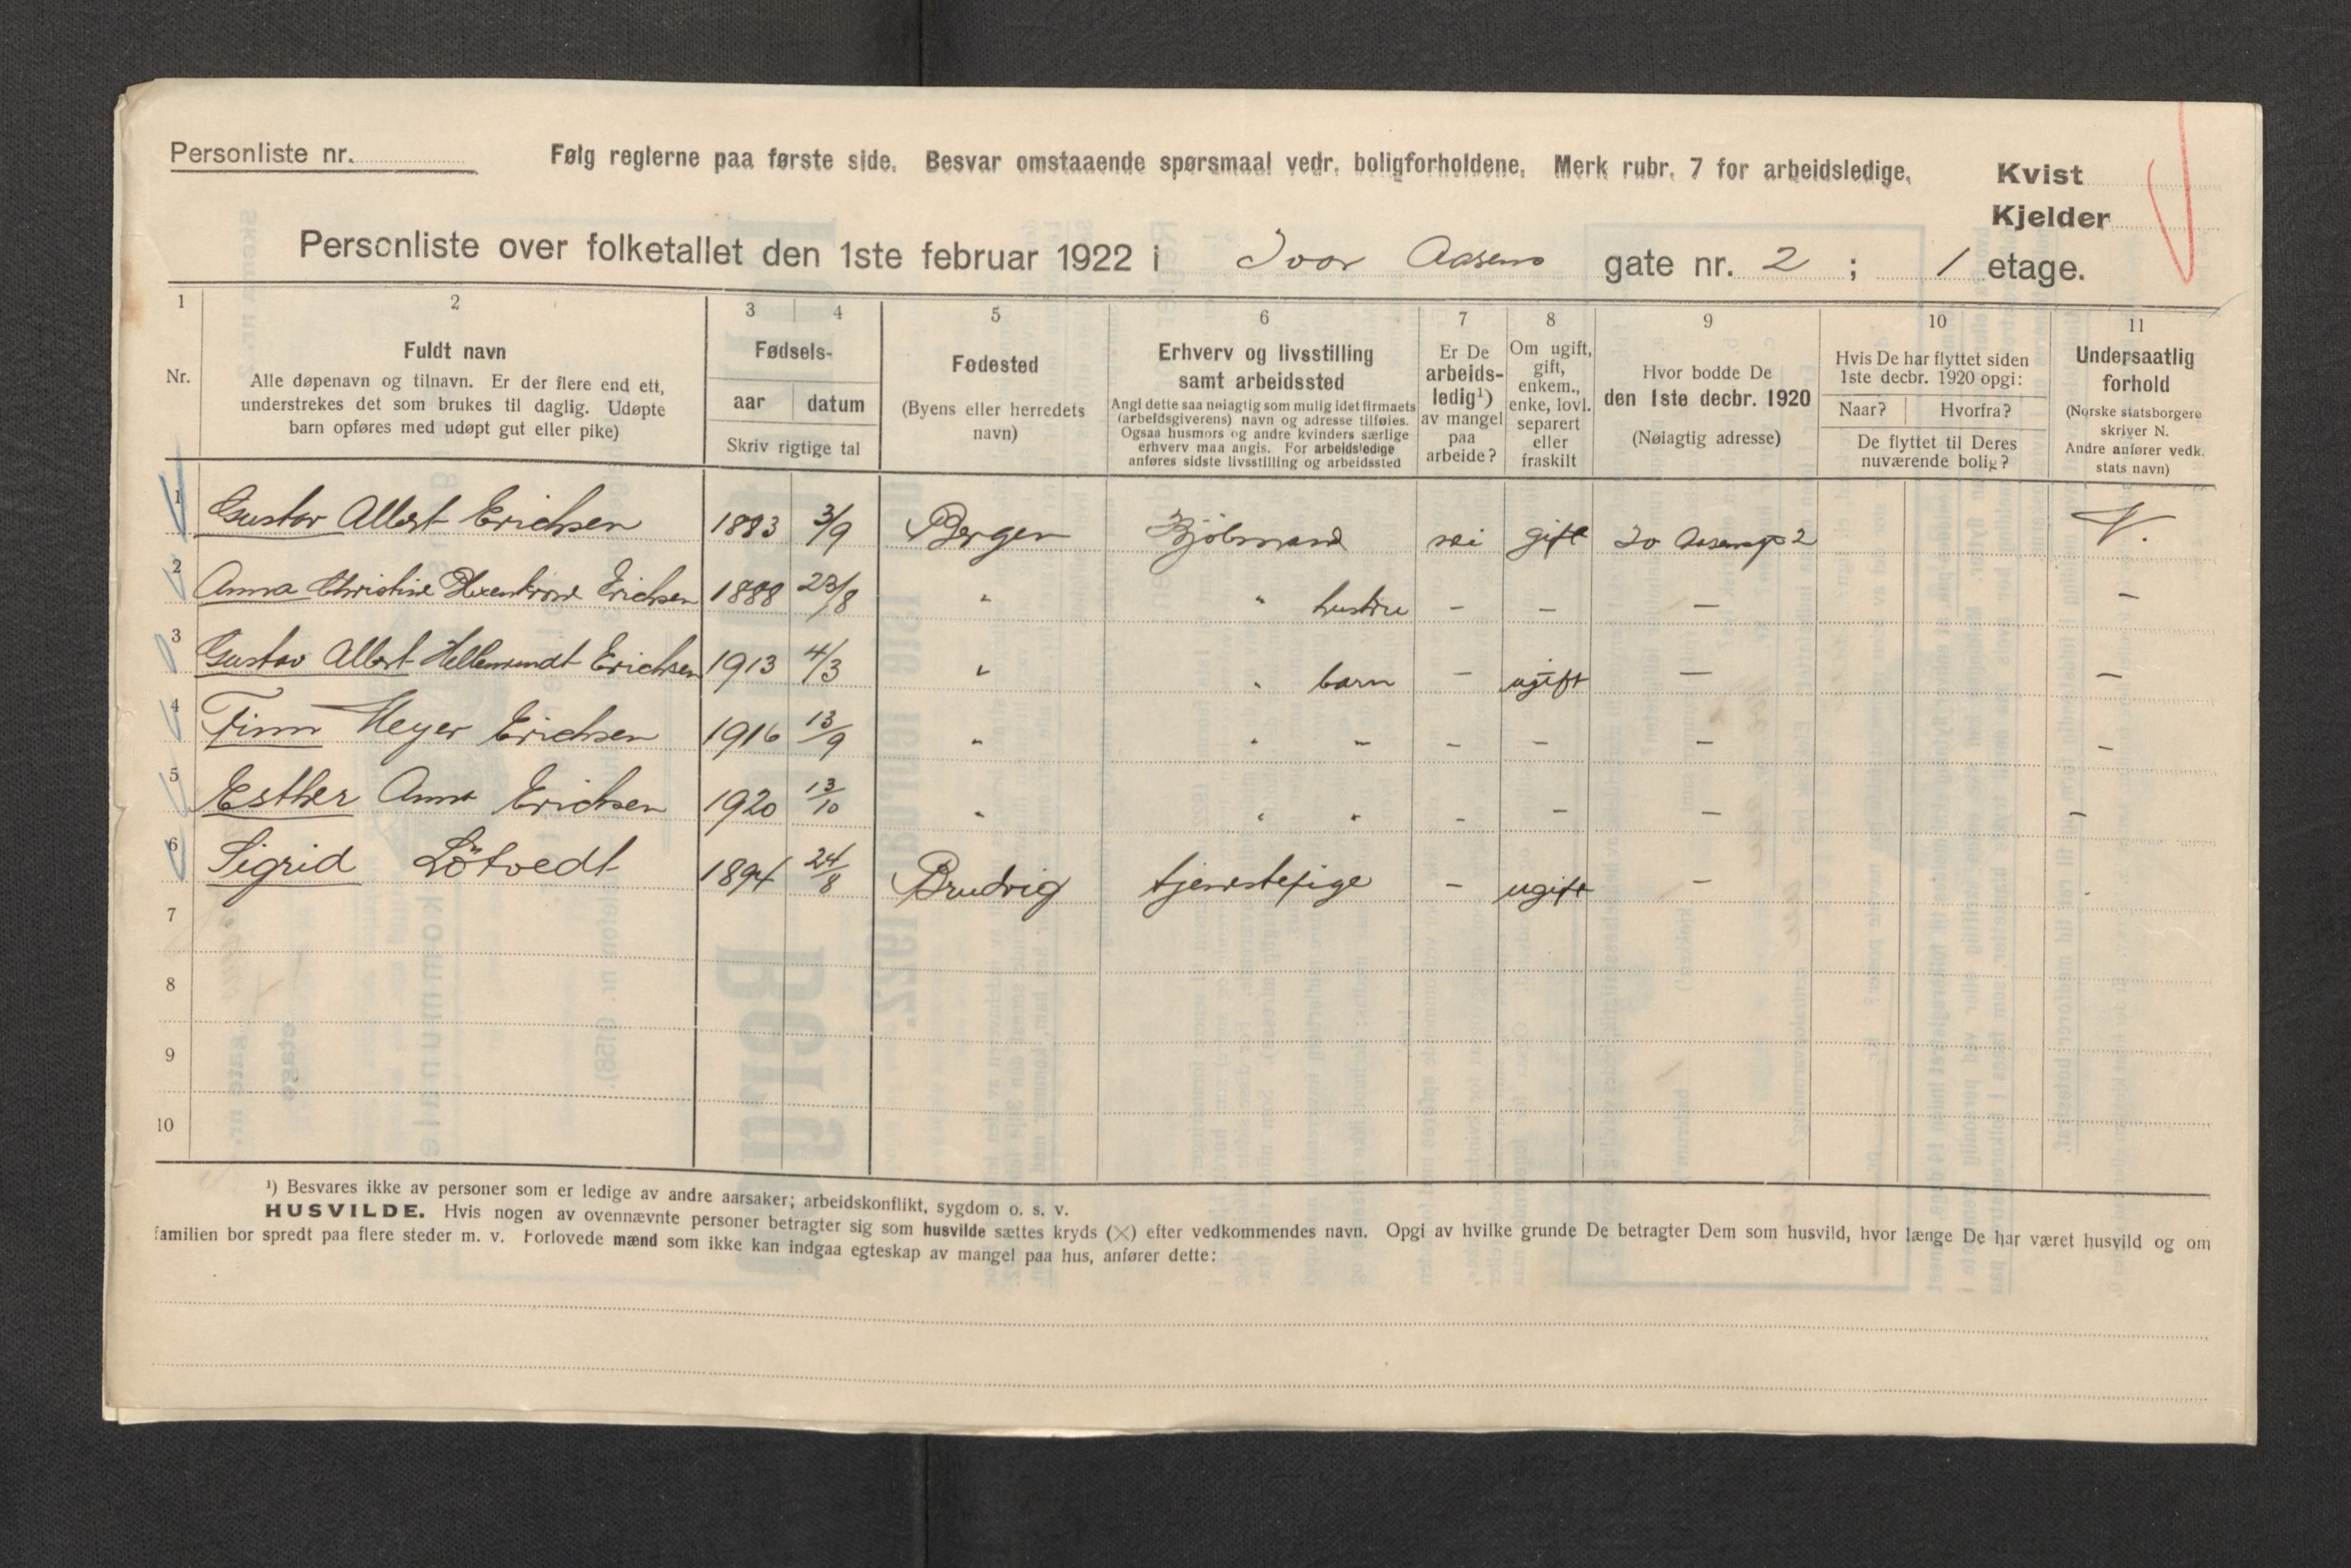 Personliste nr.
Følg reglerne paa første side. Besvar omstaaende spørsmaal vedr. boligforholdene. Merk rubr. 7 for arbeidsledige.
Kvist
Kjelder
Personliste over folketallet den 1ste februar 1922 i Ivar Aasens gate nr. 2 ; 1 etage.
1 2 3 4 5 6 7 8 9 10 11
Nr.
Fuldt navn
Alle døpenavn og tilnavn. Er der flere end ett,
understrekes det som brukes til daglig. Udøpte
barn opføres med udøpt gut eller pike)
Fødsels-
aar datum
Skriv rigtige tal
Fødested
(Byens eller herredets
navn)
Erhverv og livsstilling
samt arbeidssted
Angi dette saa nøiagtig som mulig idet firmaets
(arbeidsgiverens) navn og adresse tilføies.
Ogsaa husmors og andre kvinders særlige
erhverv maa angis. For arbeidsledige
anføres sidste livsstilling og arbeidssted
Er De
arbeids-
ledig¹)
av mangel
paa
arbeide?
Om ugift,
gift,
enkem.,
enke, lovl.
separert
eller
fraskilt
Hvor bodde De
den 1ste decbr. 1920
(Nøiagtig adresse)
Hvis De har flyttet siden
1ste decbr. 1920 opgi:
Naar? Hvorfra?
De flyttet til Deres
nuværende bolig?
Undersaatlig
forhold
(Norske statsborgere
skriver N.
Andre anfører vedk.
stats navn)
1 Gustav Albert Erichsen 1883 3/9 Bergen nei gift Iv Aasensgt 2 N.
2 Anna Christine Erichsen 1888 23/8 " " hustru - - - -
3 Gustav Albert Erichsen 1913 4/3 " " barn - ugift - -
4 Finn Meyer Erichsen 1916 13/9 " " " - - - -
5 Esther Anna Erichsen 1920 13/10 " " " - - - -
6 Sigrid Lötvedt 1894 24/8 Bruvig tjenestepige - ugift -
7
8
9
10
¹) Besvares ikke av personer som er ledige av andre aarsaker; arbeidskonflikt, sygdom o. s. v.
HUSVILDE. Hvis nogen av ovennævnte personer betragter sig som husvilde sættes kryds (×) efter vedkommendes navn. Opgi av hvilke grunde De betragter Dem som husvild, hvor længe De har været husvild og om
familien bor spredt paa flere steder m. v. Forlovede mænd som ikke kan indgaa egteskap av mangel paa hus, anfører dette: